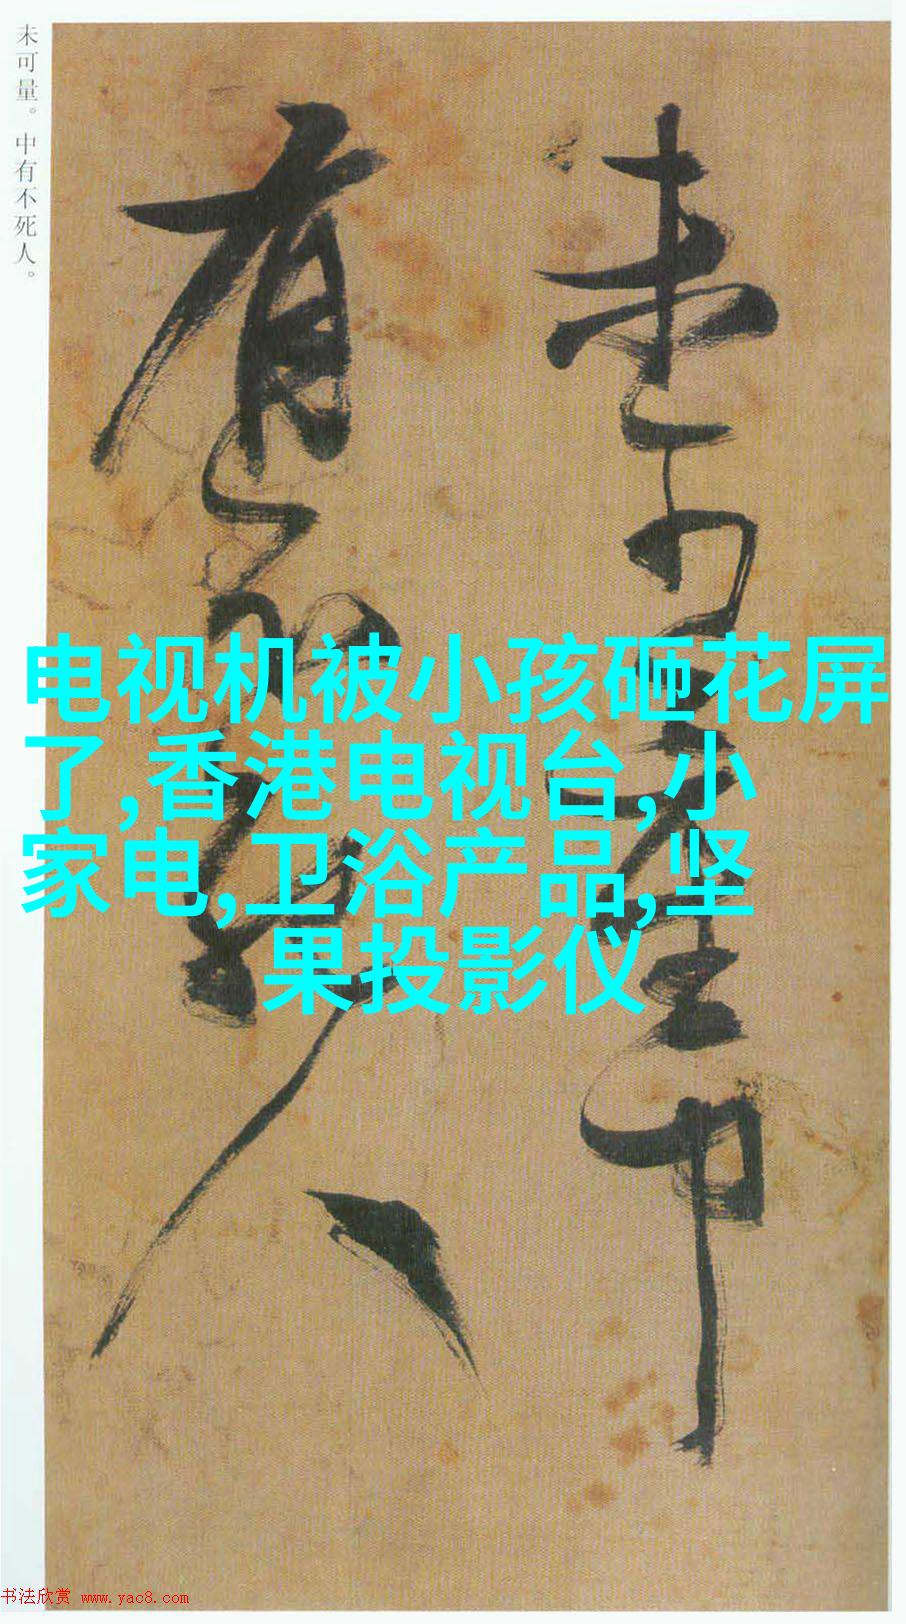 未可量。中有不死人。
未可量中
有不死人
电视机被小孩砸花屏
了,香港电视台,小
家电,卫浴产品,坚
果投影仪
书法欣赏 www.yac8.com